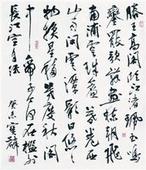 滕王高閣臨江渚佩玉鳴
鸞罷歌舞畫棟朝飛
南浦雲珠簾暮卷西
山雨閒雲潭影日悠悠
物換星移幾度秋閣
中帝子今何在檻外
長江空自流